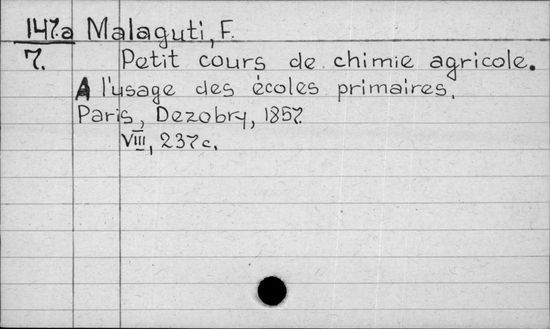 147.a Malaguti, F.
7. Petit cours de chimie agricole.
A l'usage des écoles primaires.
Paris, Dezobry, 1857.
VIII, 237 c.